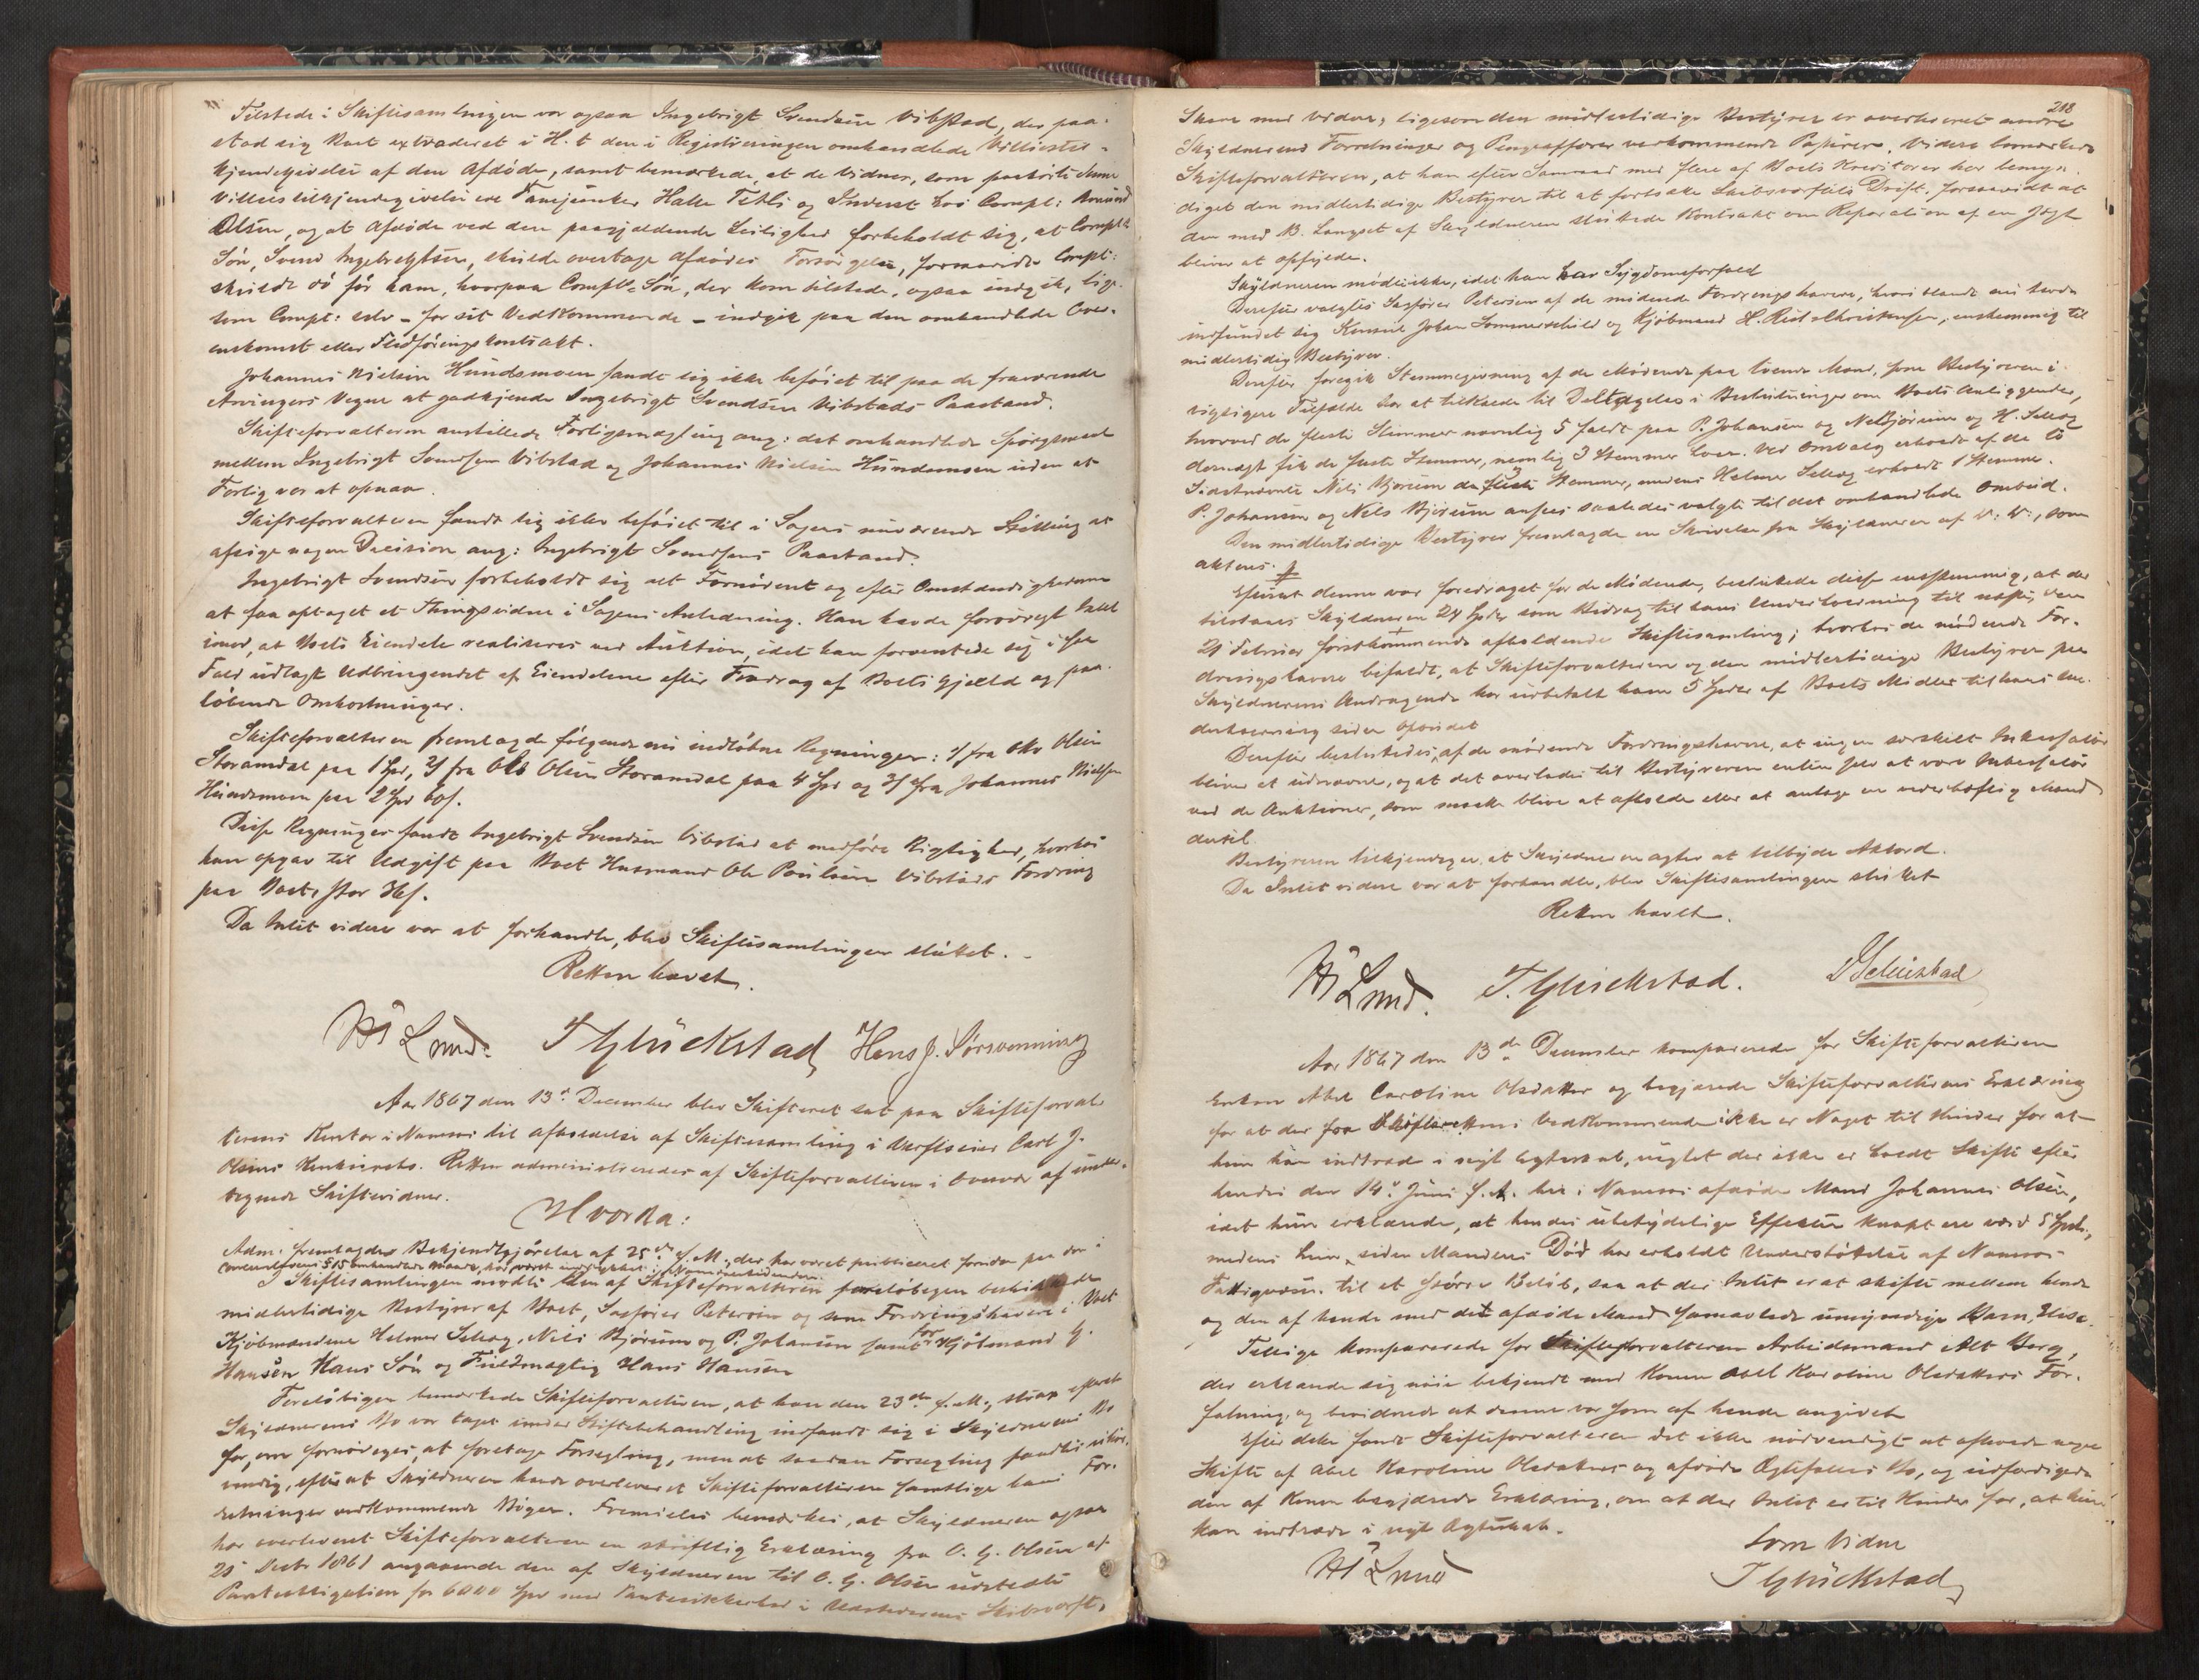 Tilstede i Skiftesamlingen var ogsaa Ingebrigt Svendsen Vibstad, der paa-
stod sig Boet extraderet i H. t. den i Registreringen omhandlede Villiestil-
kjendegivelse af den Afdøde, samt bemærkede, at de Vidner, som paahørte denne
Villiestilkjendegivelse ere Fanejunker Halle Fekli og Inderst hos Compt: Amund
Olsen, og at Afdøde ved den paagjældende Leilighed forbeholdt sig, at Compts
Søn, Svend Ingebrigtsen, skulde overtage Afdødes Forsørgelse, forsaavidt Compt:
skulde dø før ham, hvorpaa Compts Søn, der kom tilstede, ogsaa indgik, lige-
som Compt: selv – for sit Vedkommende – indgik paa den omhandlede Over-
enskomst eller Fledføringskontrakt.
Johannes Nielsen Hundsmoen fandt sig ikke beføiet til paa de fraværende
Arvingers Vegne at godkjende Ingebrigt Svendsen Vibstads Paastand.
Skifteforvalteren anstillede Forligsmægling ang: det omhandlede Spørgsmaal
mellem Ingebrigt Svendsen Vibstad og Johannes Nielsen Hundsmoen uden at
Forlig var at opnaa.
Skifteforvalteren fandt sig ikke beføiet til i Sagens nuværende Stilling at
afsige nogen Decision ang: Ingebrigt Svendsens Paastand.
Ingebrigt Svendsen forbeholdt sig alt Fornødent og efter Omstændighederne
at faa optaget et Thingsvidne i Sagens Anledning. Han havde forøvrigt Intet
imod, at Boets Eiendele realiseres ved Auktion, idet han forventede sig i saa
Fald udlagt Udbringendet af Eiendelene efter Fradrag af Boets Gjæld og paa-
løbende Omkostninger.
Skifteforvalteren fremlagde følgende nu indløbne Regninger: 1/ fra Ole Olsen
Storamdal paa 1 Spd, 2/ fra Ole Olsen Storamdal paa 4 Spd og 3/ fra Johannes Nielsen
Hundsmoen paa 2 Spd 60 s.
Disse Regninger fandt Ingebrigt Svendsen Vibstad at medføre Rigtighed, hvorhos
han opgav til Udgift paa Boet Husmand Ole Paulsen Vibstads Fordring
paa Boet, stor 36 s.
Da Intet videre var at forhandle, blev Skiftesamlingen sluttet. –
Retten hævet.
Lund. T Glückstad, Hans J. Sørsvenning
Aar 1867 den 13de December blev Skifteret sat paa Skifteforval-
terens Kontor i Namsos til Afholdelse af Skiftesamling i Værftseier Carl J.
Olsens Konkursbo. Retten administreredes af Skifteforvalteren i Overvær af under-
tegnede Skiftevidner.
Hvorda:
Adm: fremlagde Bekjendtgjørelse af 25de f. M., der har været publiceret forsiden paa den i
Concurslovens § 15 omhandlede Maade, har været indrykket i
I Skiftesamlingen mødte den af Skifteforvalteren foreløbigen beskikkede
midlertidige Bestyrer af Boet, Sagfører Petersen og som Fordringshavere i Boet
Kjøbmændene Helmer Sellæg, Nils Bjørum og P. Johansen samt for Kjøbmand G.
Hansen Hans Søn og Fuldmægtig Hans Hansen
Foreløbigen bemærkede Skifteforvalteren, at han den 23de f. M., strax efterat
Skyldnerens Bo var taget under Skiftebehandling indfandt sig i Skyldnerens Bo
for, om fornødiges, at foretage Forsegling, men at saadan Forsegling fandtes unød-
vendig, efterat Skyldneren havde overleveret Skifteforvalteren samtlige hans For-
retninger vedkommende Bøger. Fremdeles bemærkes, at Skyldneren ogsaa
har overleveret Skifteforvalteren en skriftlig Erklæring fra O. G. Olsen af
25 Decbr 1861 angaaende den af Skyldneren til O. G. Olsen udstedte
Panteobligation for 6000 Spd med Pantesikkerhed i Udstederens Skibsværft,
218
Skure med videre, ligesom den midlertidige Bestyrer er overleveret andre
Skyldnerens Forretninger og Pengeaffærer vedkommende Papirer. Videre bemærkede
Skifteforvalteren, at han efter Samraad med flere af Boets Kreditorer har bemyn-
diget den midlertidige Bestyrer til at fortsætte Skibsværftets Drift, forsaavidt at
den med B. Langset af Skyldneren sluttede Kontrakt om Reparation af en Jagt
bliver at opfylde.
Skyldneren mødte ikke, idet han har Sygdomsforfald
Derefter valgtes Sagfører Petersen af de mødende Fordringshavere, hvoriblandt nu havde
indfundet sig Konsul Johan Sommerschield og Kjøbmand H. Rist Christensen, enstemmig til
midlertidig Bestyrer.
Derefter foregik Stemmegivning af de Mødende paa tvende Mænd, som Bestyreren i
vigtigere Tilfælde har at tilkalde til Deltagelse i Beslutninger om Boets Anliggender,
hvorved de fleste Stemmer navnlig 5 faldt paa P. Johansen og Nils Bjørum og H. Sellæg
dernæst fik de fleste Stemmer, nemlig 3 Stemmer hver. Ved Omvalg erholdt af de to
Sidstnævnte Nils Bjørum de fleste Stemmer, medens Helmer Sellæg erholdt 1 Stemme.
P. Johansen og Nils Bjørum ansees saaledes valgte til det omhandlede Ombud.
Den midlertidige Bestyrer fremlagde en Skrivelse fra Skyldneren af D. D., som
aktens.
Efterat denne var foredraget for de Mødende, besluttede disse enstemmig, at der
tilstaaes Skyldneren 24 Spdlr som Bidrag til hans Underholdning til næste, den
21 Februar førstkommende afholdende Skiftesamling; hvorhos de mødende For-
dringshavere bifaldt, at Skifteforvalteren og den midlertidige Bestyrer paa
Skyldnerens Andragende har udbetalt ham 5 Spdlr af Boets Midler til hans Un-
derholdning siden Opbudet
Derefter besluttedes af de mødende Fordringshavere, at ingen særskilt Inkassator
bliver at udnævne, og at det overlades til Bestyreren enten selv at være Inkassator
ved de Auktioner, som maatte blive at afholde eller at antage en vederhæftig Mand
dertil.
Bestyreren tilkjendegav, at Skyldneren agter at tilbyde Akkord.
Da Intet videre var at forhandle, blev Skiftesamlingen sluttet
Retten hævet.
Lund. T. Glückstad.
Aar 1867 den 13de December komparerede for Skifteforvalteren
Enken Abel Caroline Olsdatter og begjærede Skifteforvalterens Erklæring
for at der fra Skifterettens Vedkommende ikke er Noget til Hinder for at
hun kan indtræde i nyt Ægteskab, uagtet der ikke er holdt Skifte efter
hendes den 14de Juni f. A. her i Namsos afdøde Mand Johannes Olsen,
idet hun erklærede, at hendes ubetydelige Effekter knapt ere værd 5 Spdlr,
medens hun siden Mandens Død har erholdt Understøttelse af Namsos
Fattigvæsen til et større Beløb, saa at der Intet er at skifte mellem hende
og den af hende med det afdøde Mand sammavlede umyndige Barn, Elise.
Tillige komparerede for Skifteforvalteren Arbeidsmand Alt Berg,
der erklærede sig nøie bekjendt med Konen Abel Karoline Olsdatters For-
fatning, og bevidnede at denne var som af hende angivet
Efter dette fandt Skifteforvalteren det ikke nødvendigt at afholde noget
Skifte af Abel Karoline Olsdatters og afdøde Ægtefælles Bo, og udfærdigede
den af Konen begjærede Erklæring, om at der Intet er til Hinder for, at hun
kan indtræde i nyt Ægteskab.
Som Vidne
Lund T Glückstad